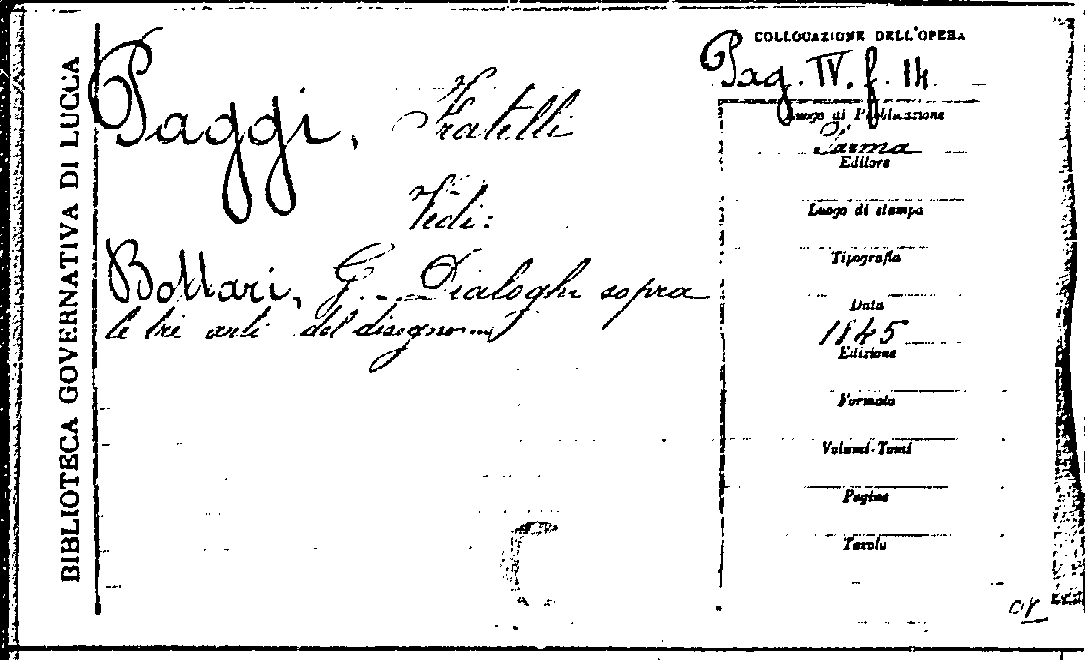 BIBLIOTECA GOVERNATIVA DI LUCCA
Paggi, Fratelli
Vedi:
Bottari, G. Dialoghi sopra
le tre arti del disegno...
COLLOCAZIONE DELL'OPERA
Pag. IV. f. 14.
Luogo di Pubblicazione
Parma
Editore
Luogo di stampa
Tipografia
Data
1845
Edizione
Formato
Volumi-Tomi
Pagine
Tavole